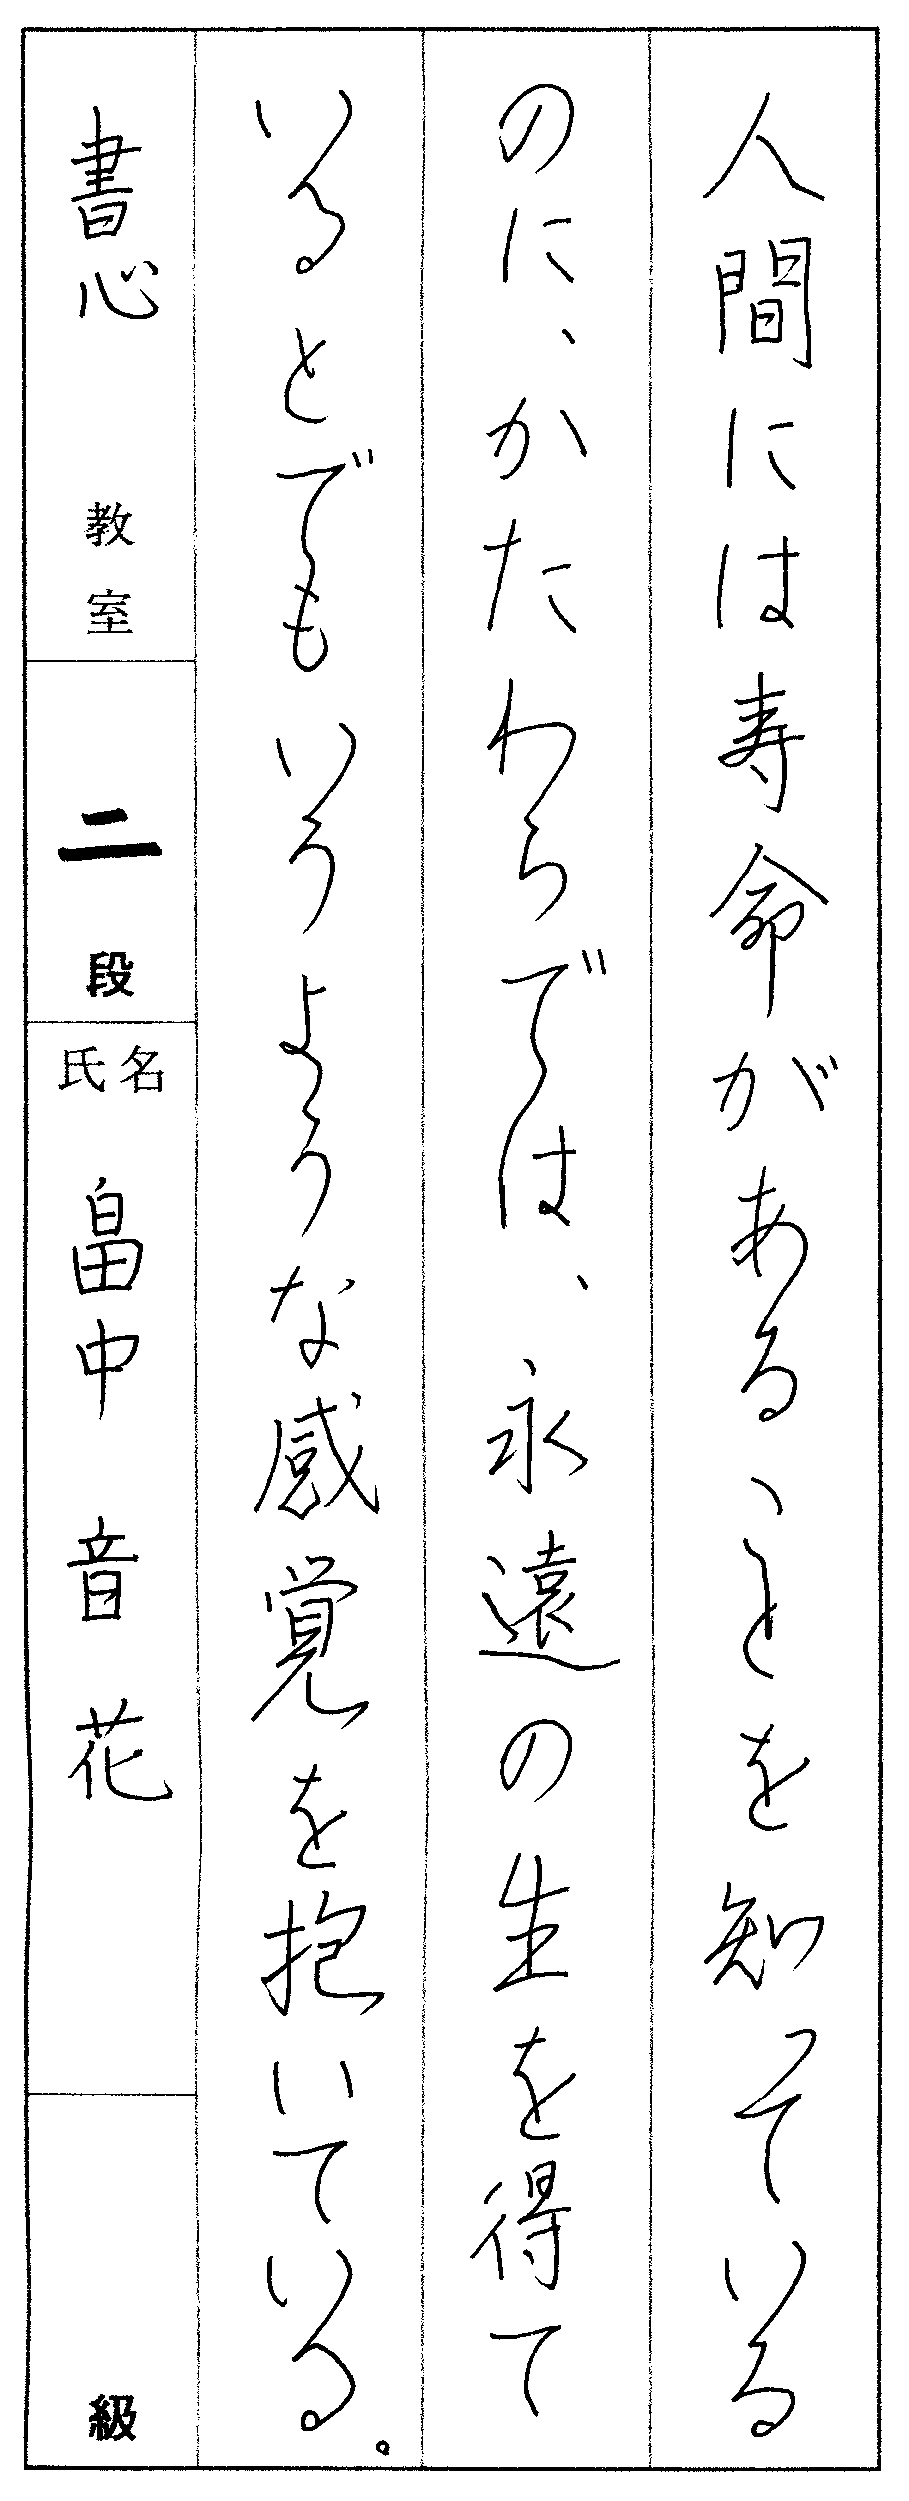 人間には寿命があることを知っている
のに、かたわらでは、永遠の生を得て
いるとでもいうような感覚を抱いている。
書心 教室
二 段
氏名
畠中 音花
級